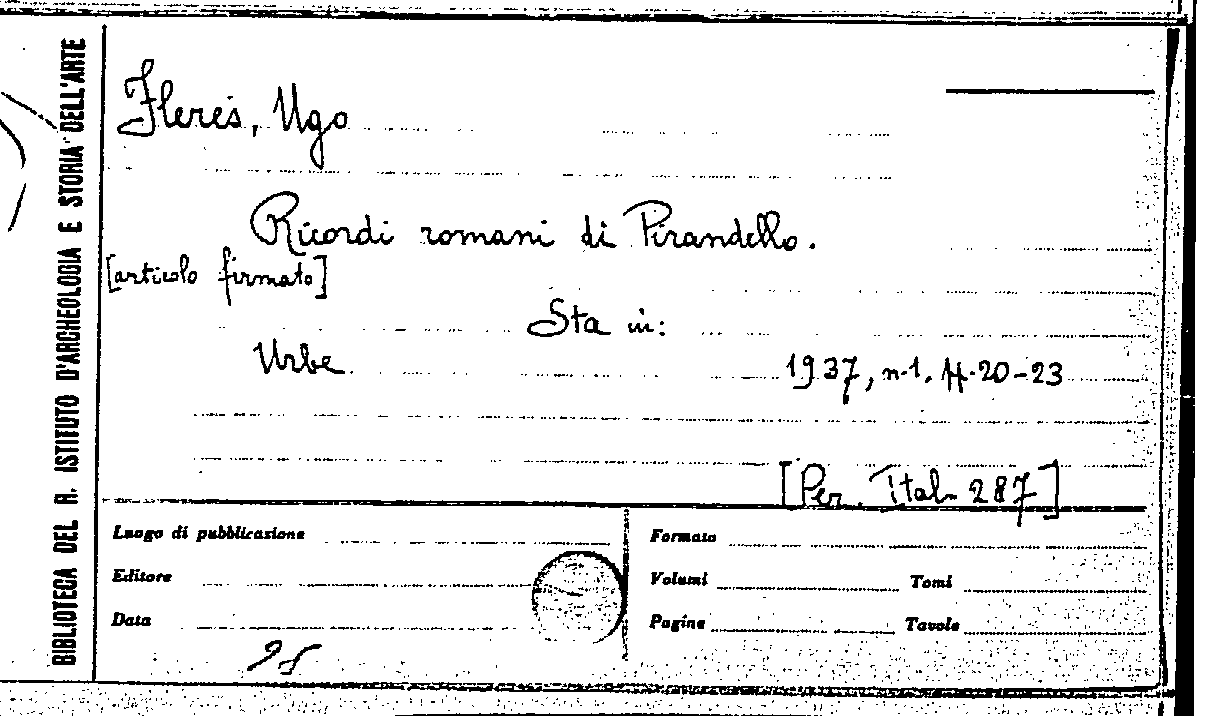 BIBLIOTECA DEL R. ISTITUTO D'ARCHEOLOGIA E STORIA DELL'ARTE
Fleres, Ugo
Ricordi romani di Pirandello.
[articolo firmato]
Sta in:
Urbe 1937, n. 1. pp. 20-23
[Per. Ital. 287]
Luogo di pubblicazione
Formato
Editore
Volumi Tomi
Data
Pagine Tavole